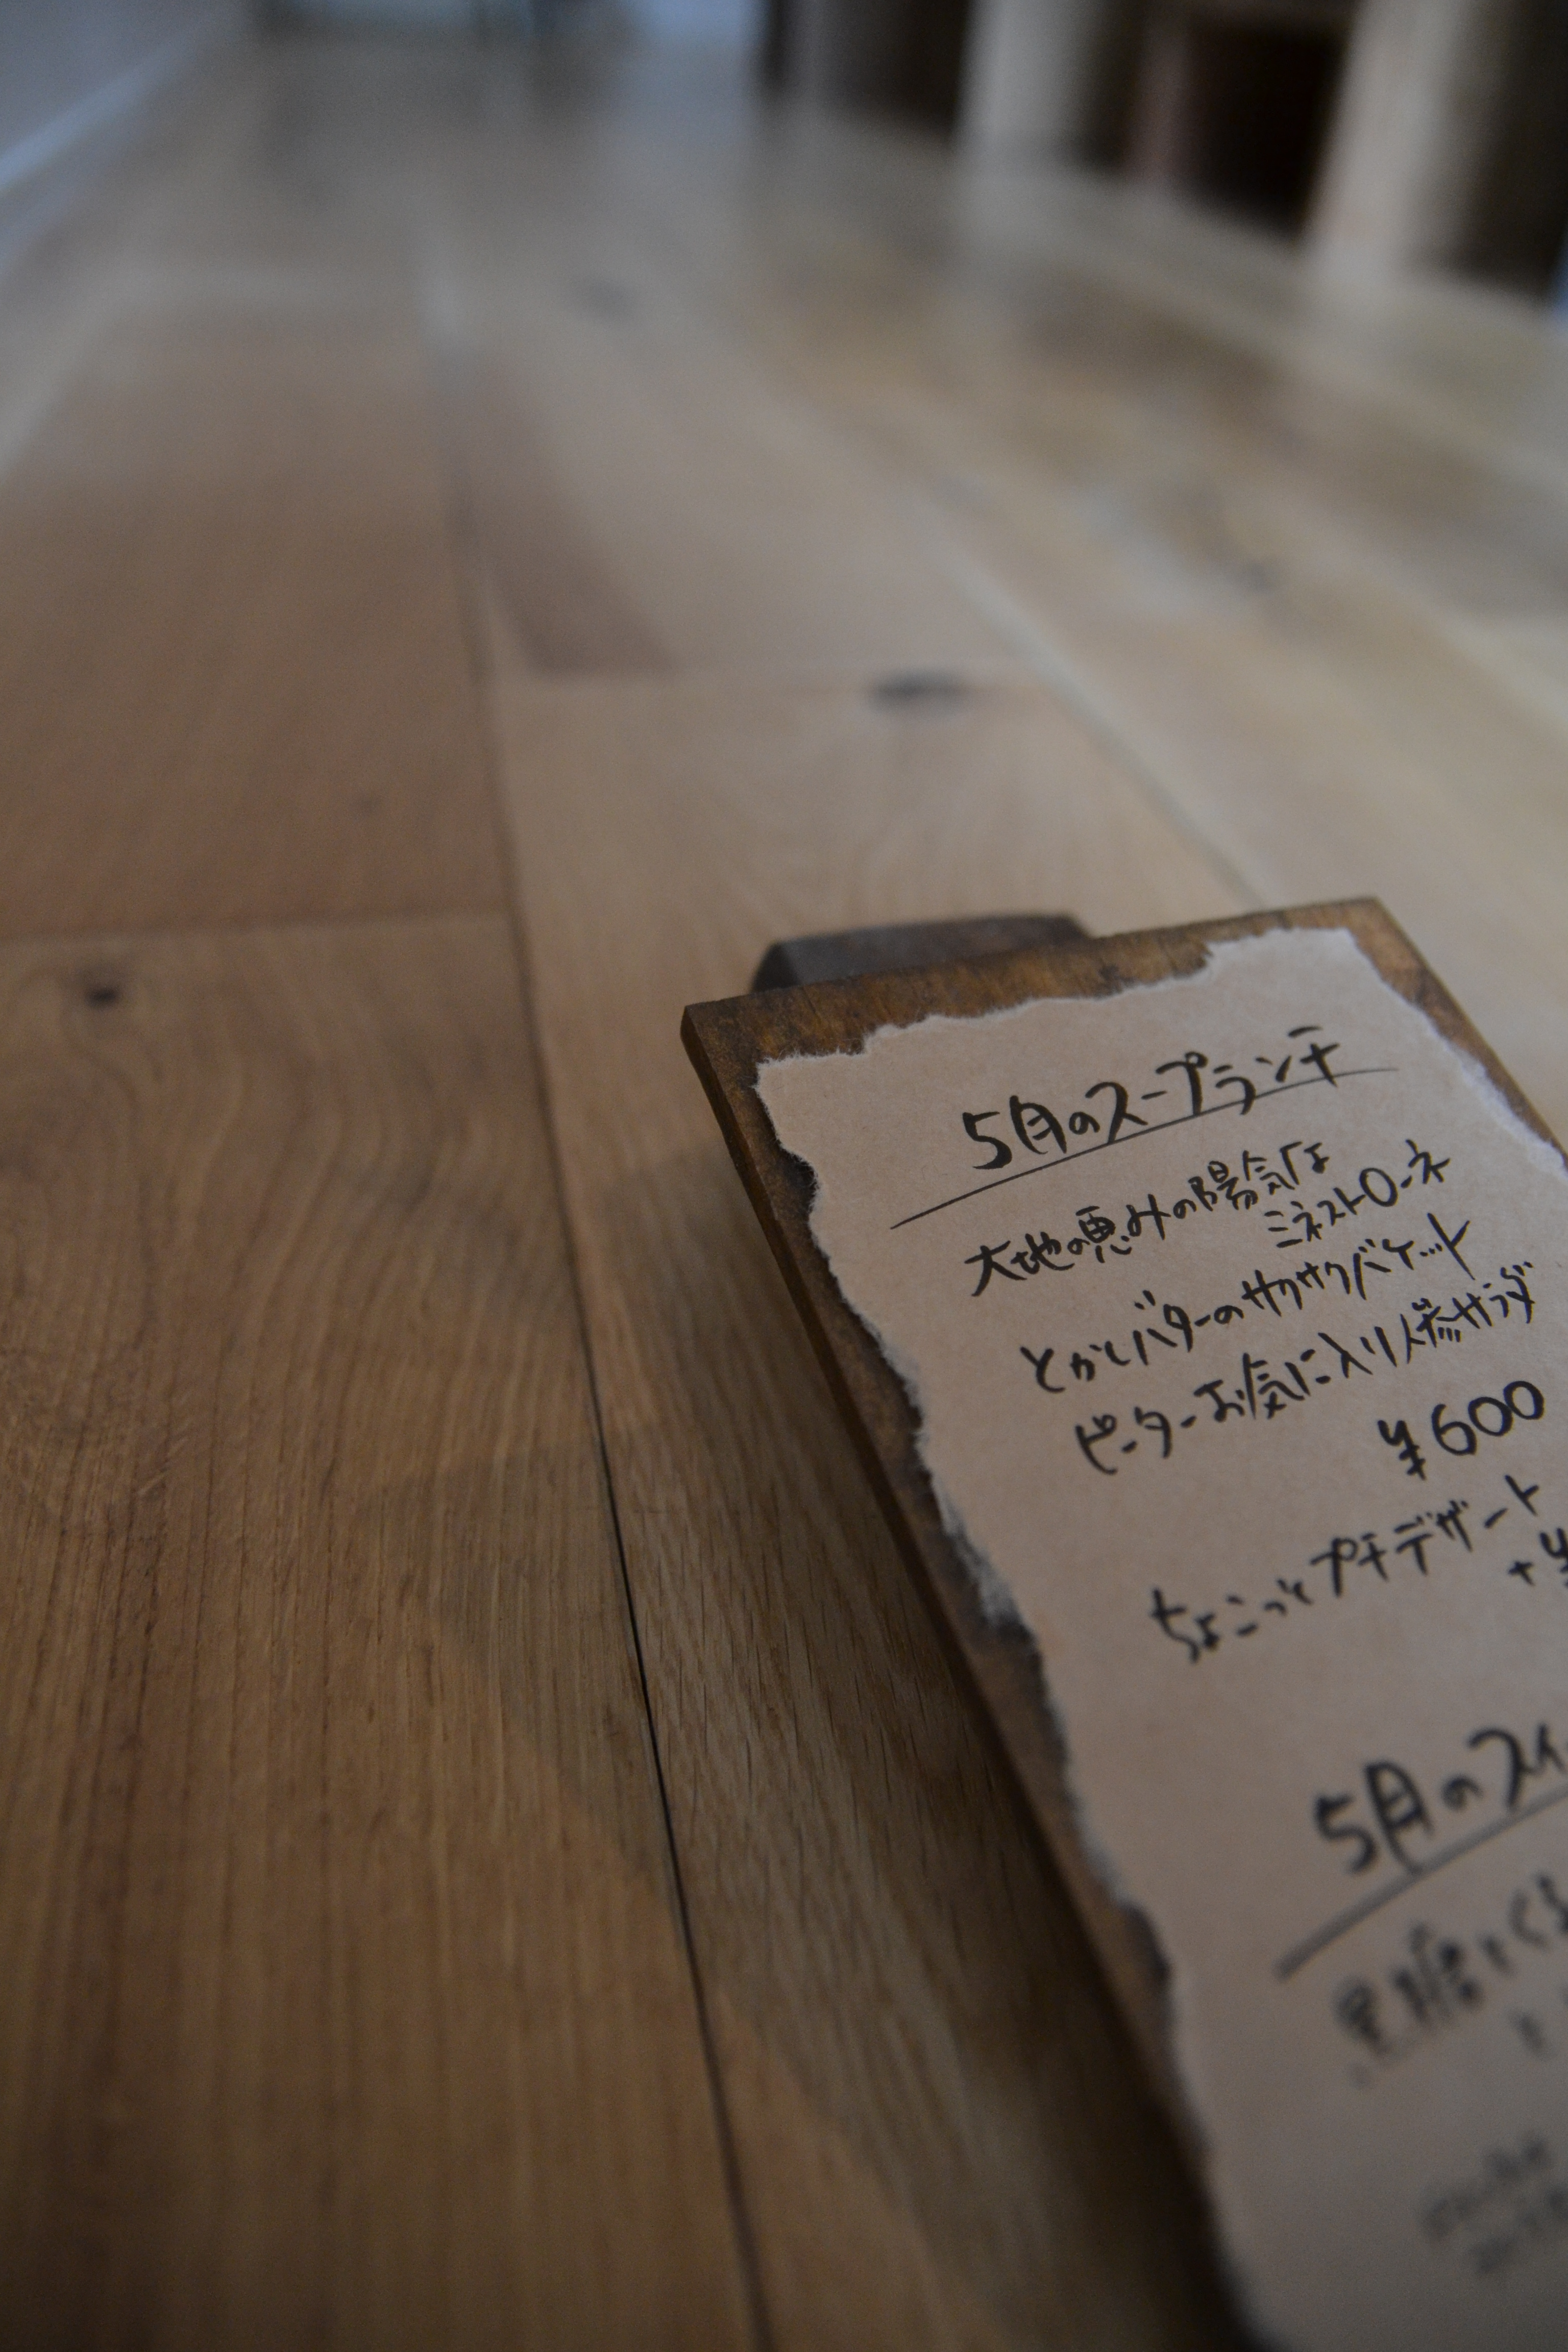 5月のスープランチ
大地の恵みの陽気な
ミネストローネ
とかしバターのサクサクバケット
ピーターお気に入り人参サラダ
¥600
ちょこっとプチデザート
+¥
5月のスイ
黒糖とくる